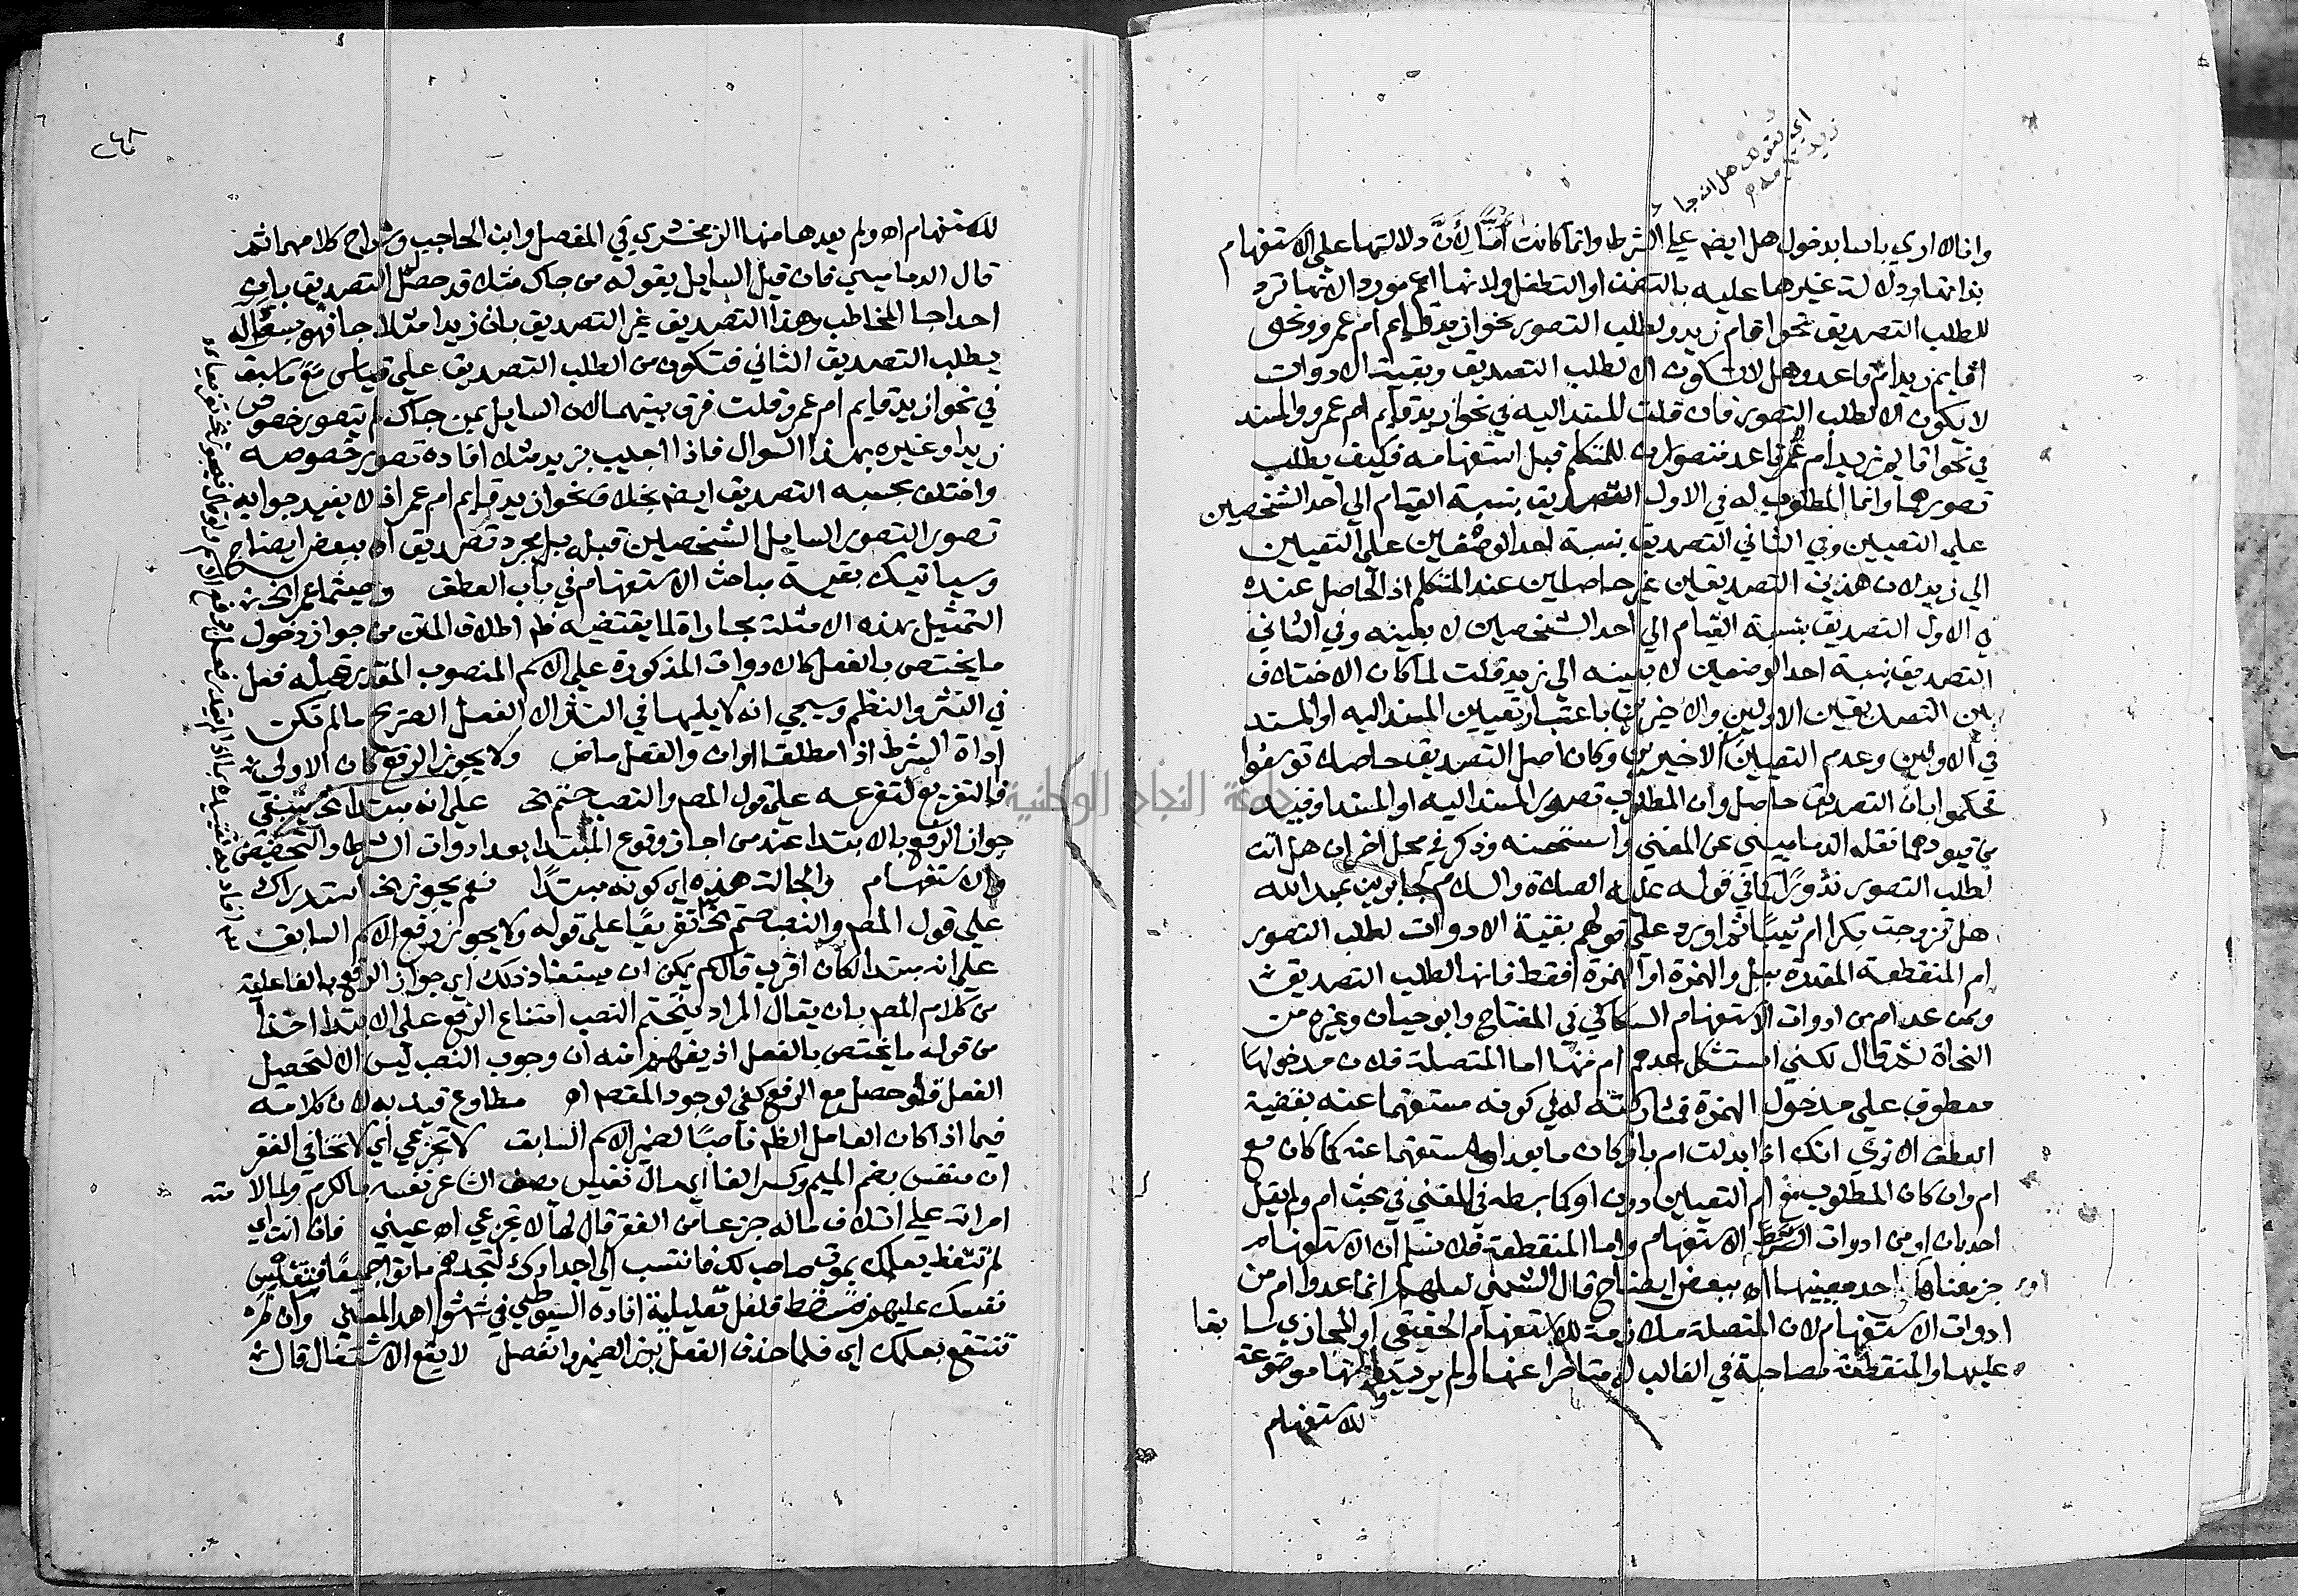 اي بقولك هل ان جا
زيد تكرمه
وانا لا اري باسا بدخول هل ايضا علي الشرط وانما كانت امًّا لأنَّ دلالتها علي الاستفهام
بذاتها ودلالة غيرها عليه بالتضمن او التطفل ولانها اعم مورد الانها ترد
للطلب التصديق نحو اقام زيد ولطلب التصور نحو ازيد قايم ام عمرو ونحو
اقايم زيد ام قاعد وهل لا تكون الا لطلب التصديق وبقية الادوات
لا يكون الا لطلب التصور فان قلت المسند اليه في نحو ازيد قايم ام عمرو والمسند
في نحو اقايم زيد ام قاعد متصوران للمتكلم قبل استفهامه فكيف يطلب
تصورهما وانما المطلوب له في الاول التصديق بنسبة القيام الي احد الشخصين
علي التعيين وفي الثاني التصديق بنسبة احد الوصفين علي التعيين
الي زيد لان هذين التصديقين غير حاصلين عند المتكلم اذ الحاصل عنده
في الاول التصديق بنسبة القيام الي احد الشخصين لا بعينه وفي الثاني
التصديق بنسبة احد الوصفين لا بعينه الي زيد قلت لما كان الاختلاف
بين التصديقين الاولين والاخيرين باعتبار تعيين المسند اليه او المسند
في الاولين وعدم التعيين الاخيرين وكان اصل التصديق حاصلا توسعوا
فحكموا بان التصديق حاصل وان المطلوب تصور المسند اليه او المسند او قيد
من قيودهما نقله الدماميني عن المغني واستحسنه وذكر في محل اخر ان هل اتت
لطلب التصور نذورًا كما في قوله عليه الصلاة والسلام لجابر بن عبد الله
هل تزوجت بكرا ام ثيبًا ثم اورد علي قولهم بقية الادوات لطلب التصور
ام المنقطعة المقدرة ببل والهمزة او الهمزة فقط فانها لطلب التصديق
وممن عد ام من ادوات الاستفهام السكاكي في المفتاح وابو حيان وغيره من
النحاة ثم قال لكني استشكل عدهم ام منها اما المتصلة فلان مدخولها
معطوف علي مدخول الهمزة فمشاركته له في كونه مستفهما عنه بقضية
العطف الا تري انك اذا ابدلت ام باو كان ما بعد او مستفهما عنه كما كان مع
ام وان كان المطلوب مع ام التعيين دون او كما بسطه في المغني في بحث ام ولم يقل
احد بان او من ادوات الاستفهام واما المنقطعة فلا نسلم ان الاستفهام
جزء معناها احد معينيها اه ببعض ايضاح قال الشمني لعلهم انما عدوا ام من
ادوات الاستفهام لان المتصلة ملازمة للاستفهام الحقيقي او المجازي سابقا
عليها والمنقطعة مصاحبة في الغالب له متاخرا عنها ولم يريدوا انها موضوعة
للاستفهام
للاستفهام اه ولم يعدها منها الزمخشري في المفصل وابن الحاجب وشراح كلامهما ثم
قال الدماميني فان قيل السايل يقوله من جاك مثلا قد حصل التصديق بان
احدا جا المخاطب وهذا التصديق غير التصديق بان زيدا مثلا جا فهو بسؤاله
يطلب التصديق الثاني فتكون من لطلب التصديق علي قياس ما سبق
في نحو ازيد قايم ام عمرو قلت فرق بينهما لان السايل بمن جاك لم يتصور خصوص
زيد او غيره بهذا السوال فاذا اجيب بزيد مثلا افاده تصور خصوصه
واختلف بحسبه التصديق ايضا بخلاف نحو ازيد قايم ام عمر اذ لا يفيد جوابه
تصور التصور السايل الشخصين قبله بل مجرد تصديق اه ببعض ايضاح
وسياتيك بقية مباحث الاستفهام في باب العطف وحيثما عمرا لخ
التمثيل بهذه الامثلة مجاراة لما يقتضيه ظ اطلاق المتن من جواز دخول
ما يختص بالفعل كالادوات المذكورة علي الاسم المنصوب المقدر قبله فعل
في النثر والنظم وسيجي انه لا يليها في النثر الا الفعل الصريح ما لم تكن
اداة الشرط اذا مطلقا او ان والفعل ماض ولا يجوز الرفع كان الاولي
فالتفريع لتفرعه علي قول المص والنصب حتم الخ علي انه مبتدا لخ ينبغي
جواز الرفع بالابتدا عند من اجاز وقوع المبتدا بعد ادوات الشرط والتحضيض
والاستفهام والحالة هذه اي كونه مبتدًا نعم يجوز الخ استدراك
علي قول المص والنصب حتم الخ تفريعًا علي قوله ولا يجوز رفع الاسم السابق
علي انه مبتدا لكان اقرب قال سم يمكن ان يستفاد ذلك اي جواز الرفع بالفاعلية
من كلام المص بان يقال المراد بتحتم النصب امتناع الرفع علي الابتدا اخذا
من قوله ما يختص بالفعل اذ يفهم منه ان وجوب النصب ليس الا لتحصيل
الفعل فلو حصل مع الرفع كفي لوجود المقصد اه مطاوع قيد به لان كلامه
فيما اذا كان العامل الظ ناصبًا لضمير الاسم السابق لا تجزعي اي لا تخافي الفقر
ان منفس بضم الميم وكسر الفا اي مال نفيس يصف الشاعر نفسه بالكرم ولما لامته
امراته علي اتلاف ماله جزعا من الفقر قال لها لا تجزعي اه عيني فان انت اي
لم تتعظ بعلمك بموت صاحبك فانتسب الي اجدادك لتجدهم ماتوا جميعًا فتقيس
نفسك عليهم فلعل تعليلية افاده السيوطي في شواهد المغني
تنتفع بعلمك اي فلما حذف الفعل برز الضمير وانفصل لا يقع الاشتغال قال